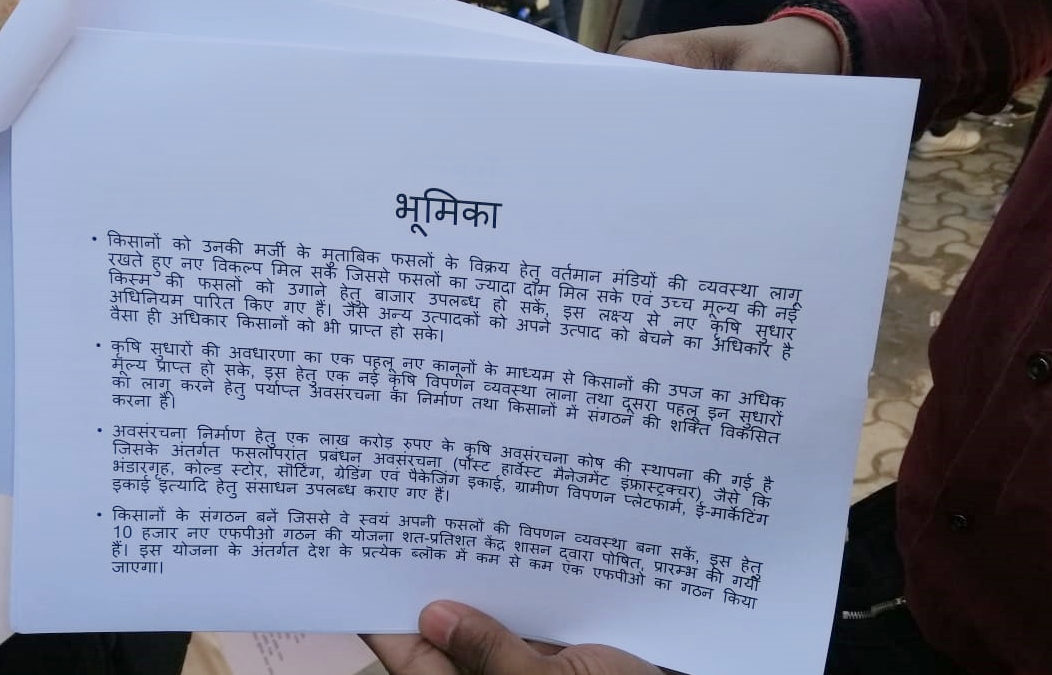 भूमिका
• किसानों को उनकी मर्जी के मुताबिक फसलों के विक्रय हेतु वर्तमान मंडियों की व्यवस्था लागू
रखते हुए नए विकल्प मिल सकें जिससे फसलों का ज्यादा दाम मिल सके एवं उच्च मूल्य की नई
किस्म की फसलों को उगाने हेतु बाजार उपलब्ध हो सकें, इस लक्ष्य से नए कृषि सुधार
अधिनियम पारित किए गए हैं। जैसे अन्य उत्पादकों को अपने उत्पाद को बेचने का अधिकार है
वैसा ही अधिकार किसानों को भी प्राप्त हो सके।
• कृषि सुधारों की अवधारणा का एक पहलू नए कानूनों के माध्यम से किसानों की उपज का अधिक
मूल्य प्राप्त हो सके, इस हेतु एक नई कृषि विपणन व्यवस्था लाना तथा दूसरा पहलू इन सुधारों
को लागू करने हेतु पर्याप्त अवसंरचना का निर्माण तथा किसानों में संगठन की शक्ति विकसित
करना है।
• अवसंरचना निर्माण हेतु एक लाख करोड़ रुपए के कृषि अवसंरचना कोष की स्थापना की गई है
जिसके अंतर्गत फसलोपरांत प्रबंधन अवसंरचना (पोस्ट हार्वेस्ट मैनेजमेंट इंफ्रास्ट्रक्चर) जैसे कि
भंडारगृह, कोल्ड स्टोर, सॉर्टिंग, ग्रेडिंग एवं पैकेजिंग इकाई, ग्रामीण विपणन प्लेटफार्म, ई-मार्केटिंग
इकाई इत्यादि हेतु संसाधन उपलब्ध कराए गए हैं।
• किसानों के संगठन बनें जिससे वे स्वयं अपनी फसलों की विपणन व्यवस्था बना सकें, इस हेतु
10 हजार नए एफपीओ गठन की योजना शत-प्रतिशत केंद्र शासन द्वारा पोषित, प्रारम्भ की गयी
हैं। इस योजना के अंतर्गत देश के प्रत्येक ब्लॉक में कम से कम एक एफपीओ का गठन किया
जाएगा।